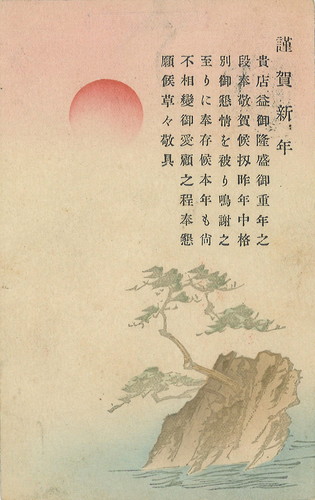 謹賀新年
貴店益御隆盛御重年之
段奉敬賀候扨昨年中格
別御懇情を被り鳴謝之
至りに奉存候本年も尙
不相變御愛顧之程奉懇
願候草々敬具